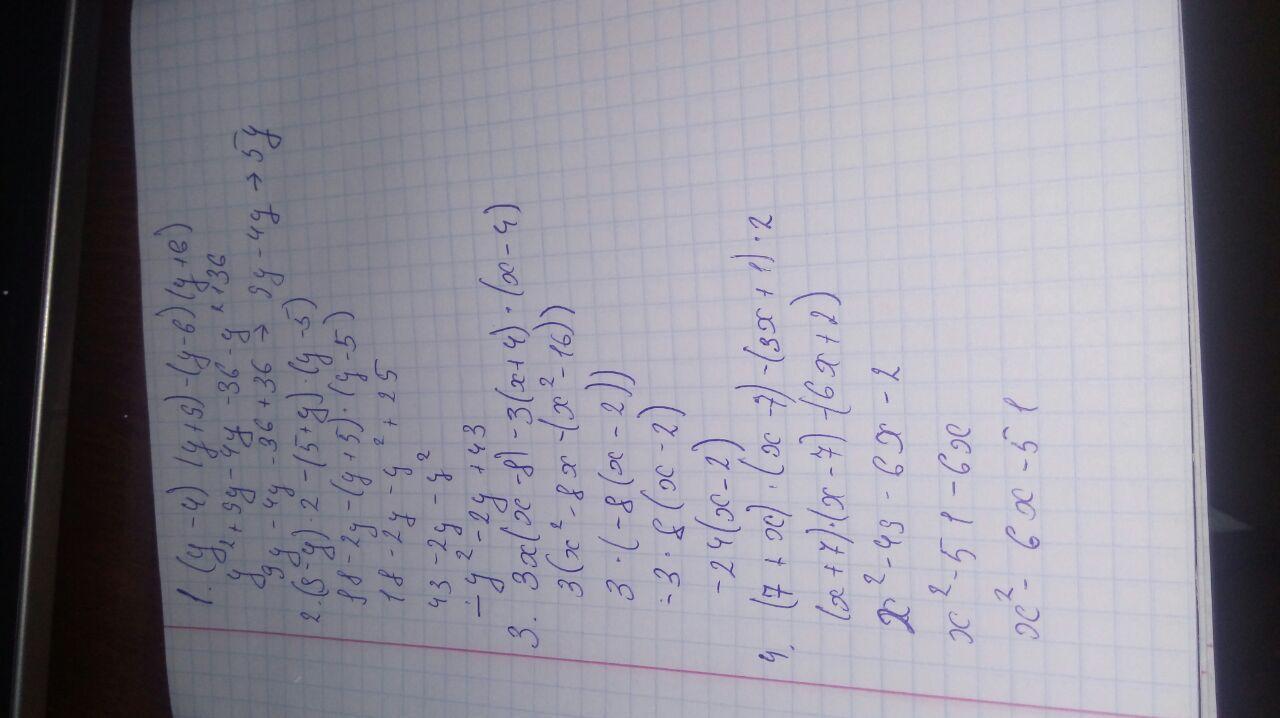 1. (y-4)(y+9)-(y-6)(y+6)
y²+9y-4y-36-y²+36
9y-4y-36+36→ 9y-4y→5y
2. (9-y)·2-(5+y)·(y-5)
18-2y-(y+5)·(y-5)
18-2y-y²+25
43-2y-y²
-y²-2y+43
3. 3x(x-8)-3(x+4)·(x-4)
3(x²-8x-(x²-16))
3·(-8(x-2))
-3·8(x-2)
-24(x-2)
4. (7+x)·(x-7)-(3x+1)·2
(x+7)·(x-7)-(6x+2)
x²-49-6x-2
x²-51-6x
x²-6x-51